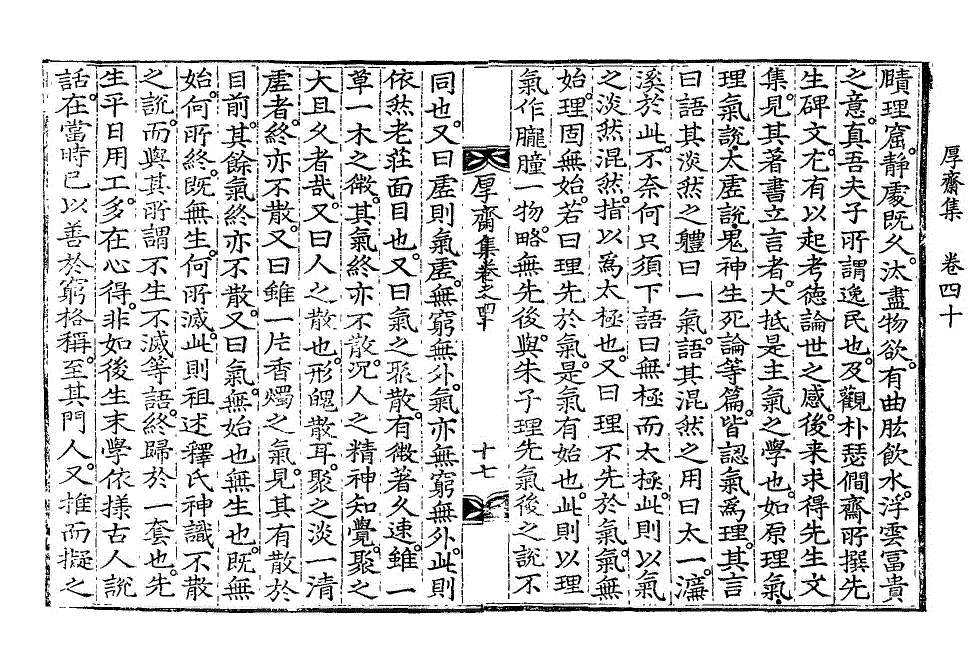 厚齋集　卷四十
賾理窟。靜處旣久。汰盡物欲。有曲肱飮水。浮雲富貴
之意。眞吾夫子所謂逸民也。及觀朴瑟僩齋所撰先
生碑文。尤有以起考德論世之感。後來求得先生文
集。見其著書立言者。大抵是主氣之學也。如原理氣,
理氣說,太虛說,鬼神生死論等篇。皆認氣爲理。其言
曰語其淡然之軆曰一氣。語其混然之用曰太一。濂
溪於此。不奈何只須下語曰無極而太極。此則以氣
之淡然混然。指以爲太極也。又曰理不先於氣。氣無
始。理固無始。若曰理先於氣。是氣有始也。此則以理
氣作朧朣一物。略無先後。與朱子理先氣後之說不
厚齋集卷之四十
十七
同也。又曰虛則氣虛。無窮無外。氣亦無窮無外。此則
依然老莊面目也。又曰氣之聚散。有微著久速。雖一
草一木之微。其氣終亦不散。況人之精神知覺。聚之
大且久者哉。又曰人之散也。形魄散耳。聚之淡一淸
虛者。終亦不散。又曰雖一片香燭之氣。見其有散於
目前。其餘氣終亦不散。又曰氣無始也無生也。旣無
始。何所終。旣無生。何所滅。此則祖述釋氏神識不散
之說。而與其所謂不生不滅等語。終歸於一套也。先
生平日用工。多在心得。非如後生末學依樣古人說
話。在當時已以善於窮格稱。至其門人。又推而擬之